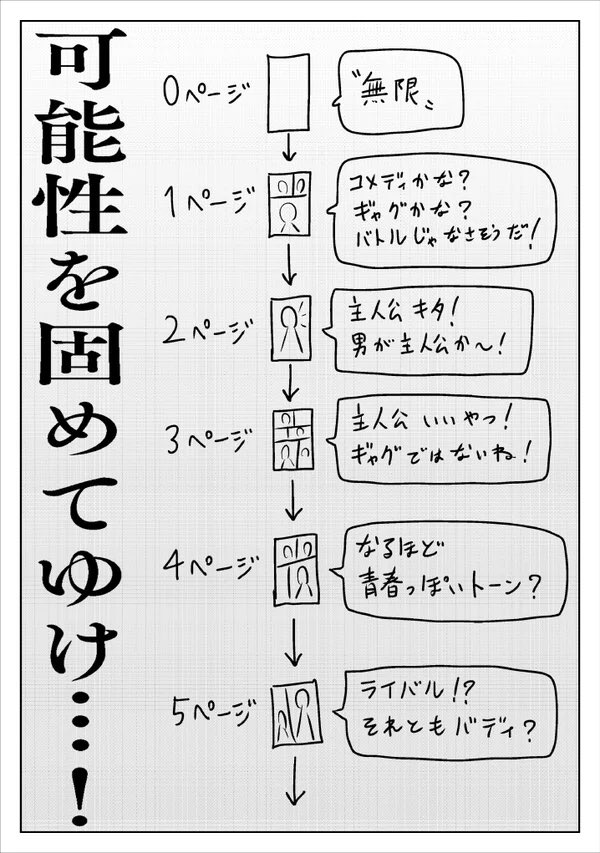 可能性を固めてゆけ…!
0ページ
〝無限〟
1ページ
コメディかな?
ギャグかな?
バトルじゃなさそうだ!
2ページ
主人公キタ!
男が主人公か〜!
3ページ
主人公 いいやつ!
ギャグではないね!
4ページ
なるほど
青春っぽいトーン?
5ページ
ライバル!?
それともバディ?